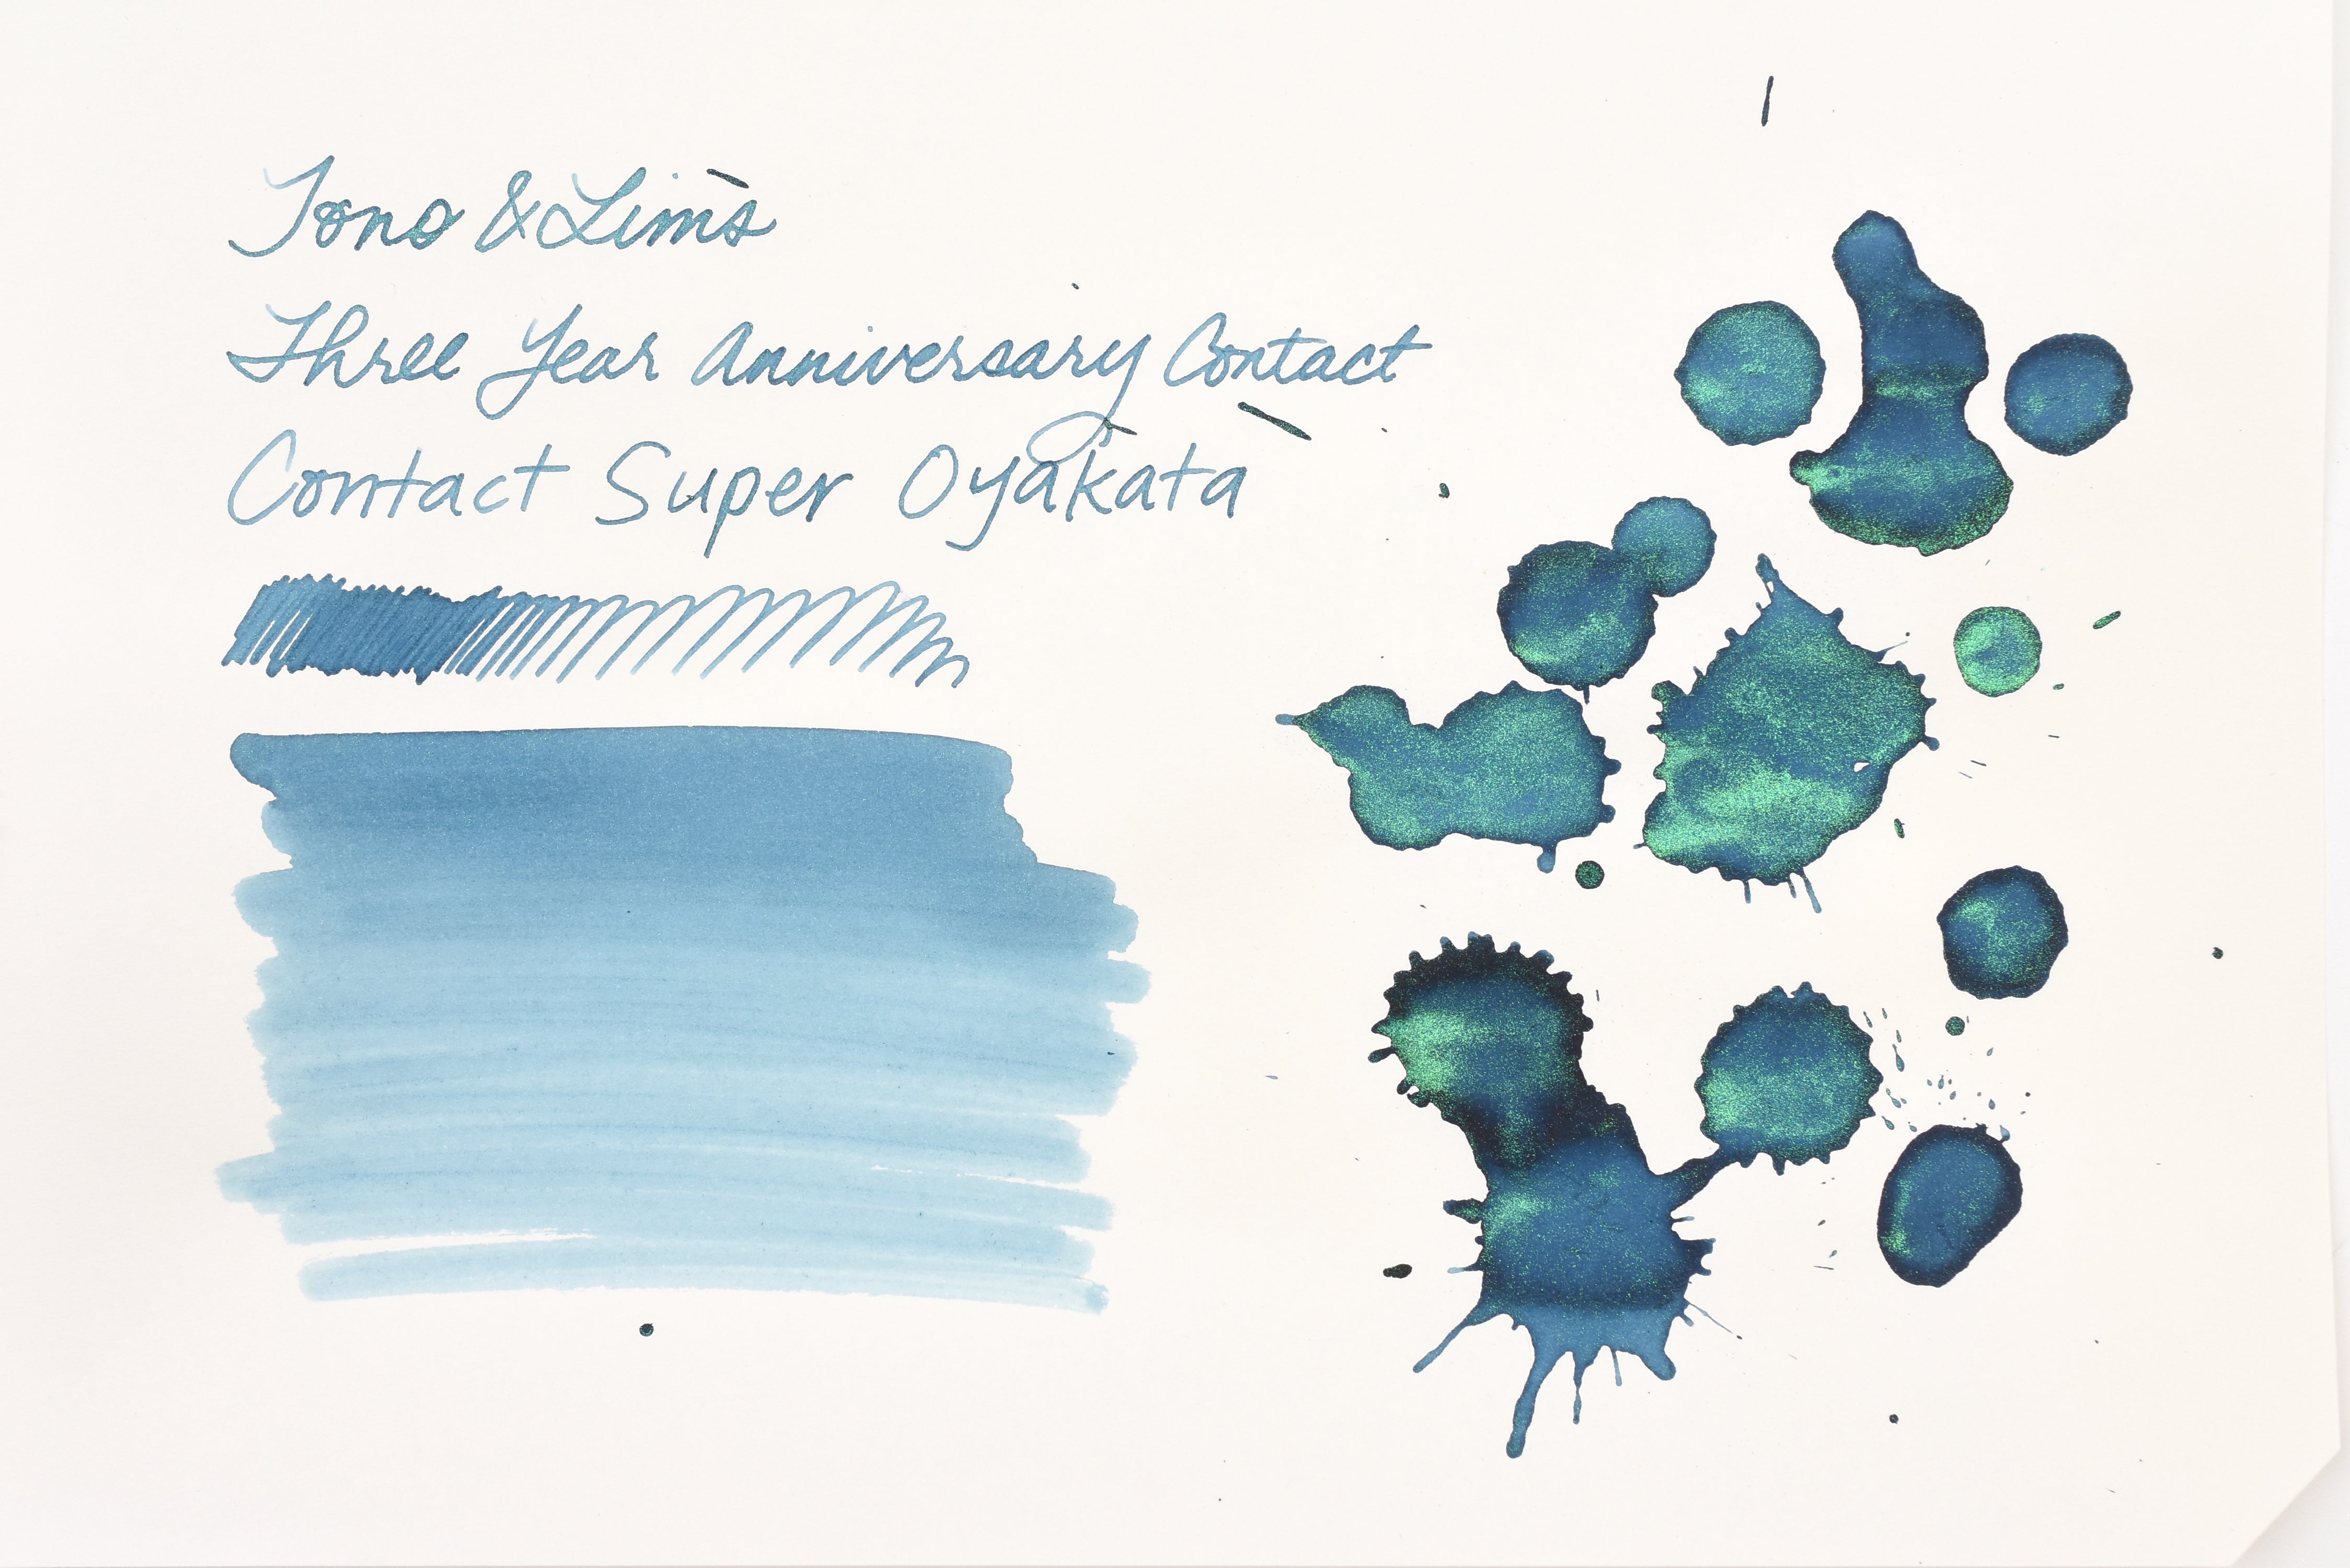 Tono & Lim's
Three Year Anniversary Contact
Contact Super Oyakata